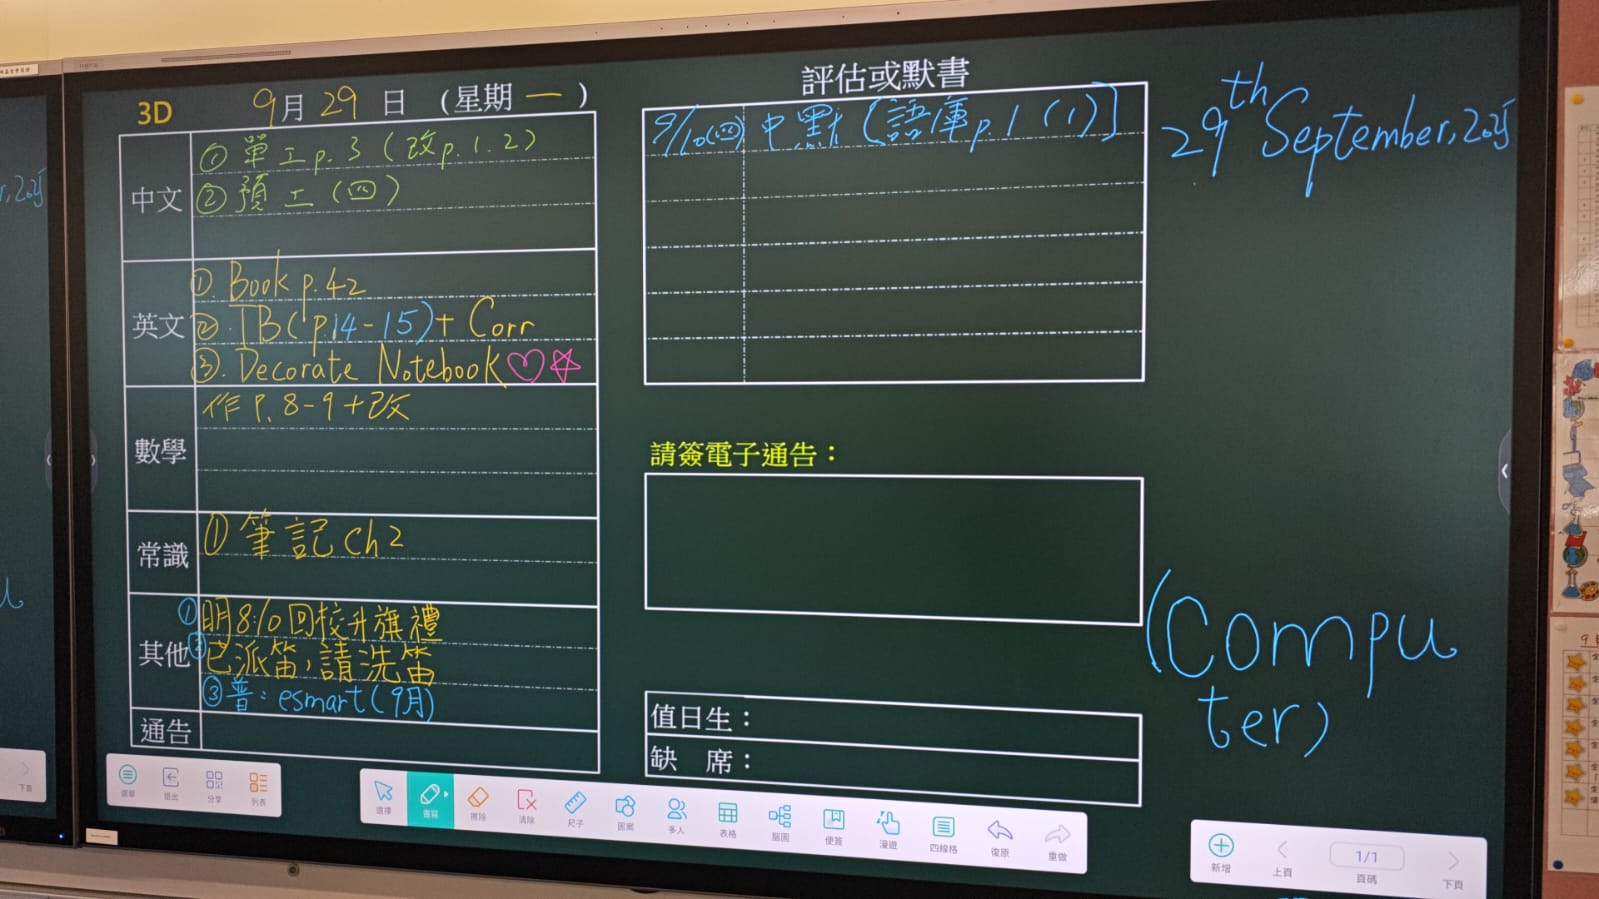 3D
9月 29 日 （星期 一 ）
中文
① 單工 p.3 (改 p.1.2)
② 預工 (四)
英文
①. Book p.42
②. TB (p.14-15) + Corr
③. Decorate Notebook
數學
作 P. 8-9 + 改
常識
① 筆記 ch 2
其他
① 明8:10回校升旗禮
② 已派笛，請洗笛
③ 普：esmart (9月)
通告
評估或默書
9/10(四) 中默 [語庫 p.1 (1)]
請簽電子通告：
值日生：
缺 席：
29th September, 2025
(Compu
ter)
選單 退出 分享 列表
選擇 書寫 擦除 清除 尺子 圖案 多人 表格 腦圖 便簽 漫遊 四線格 復原 重做
新增 上頁 1/1 頁碼 下頁
下頁